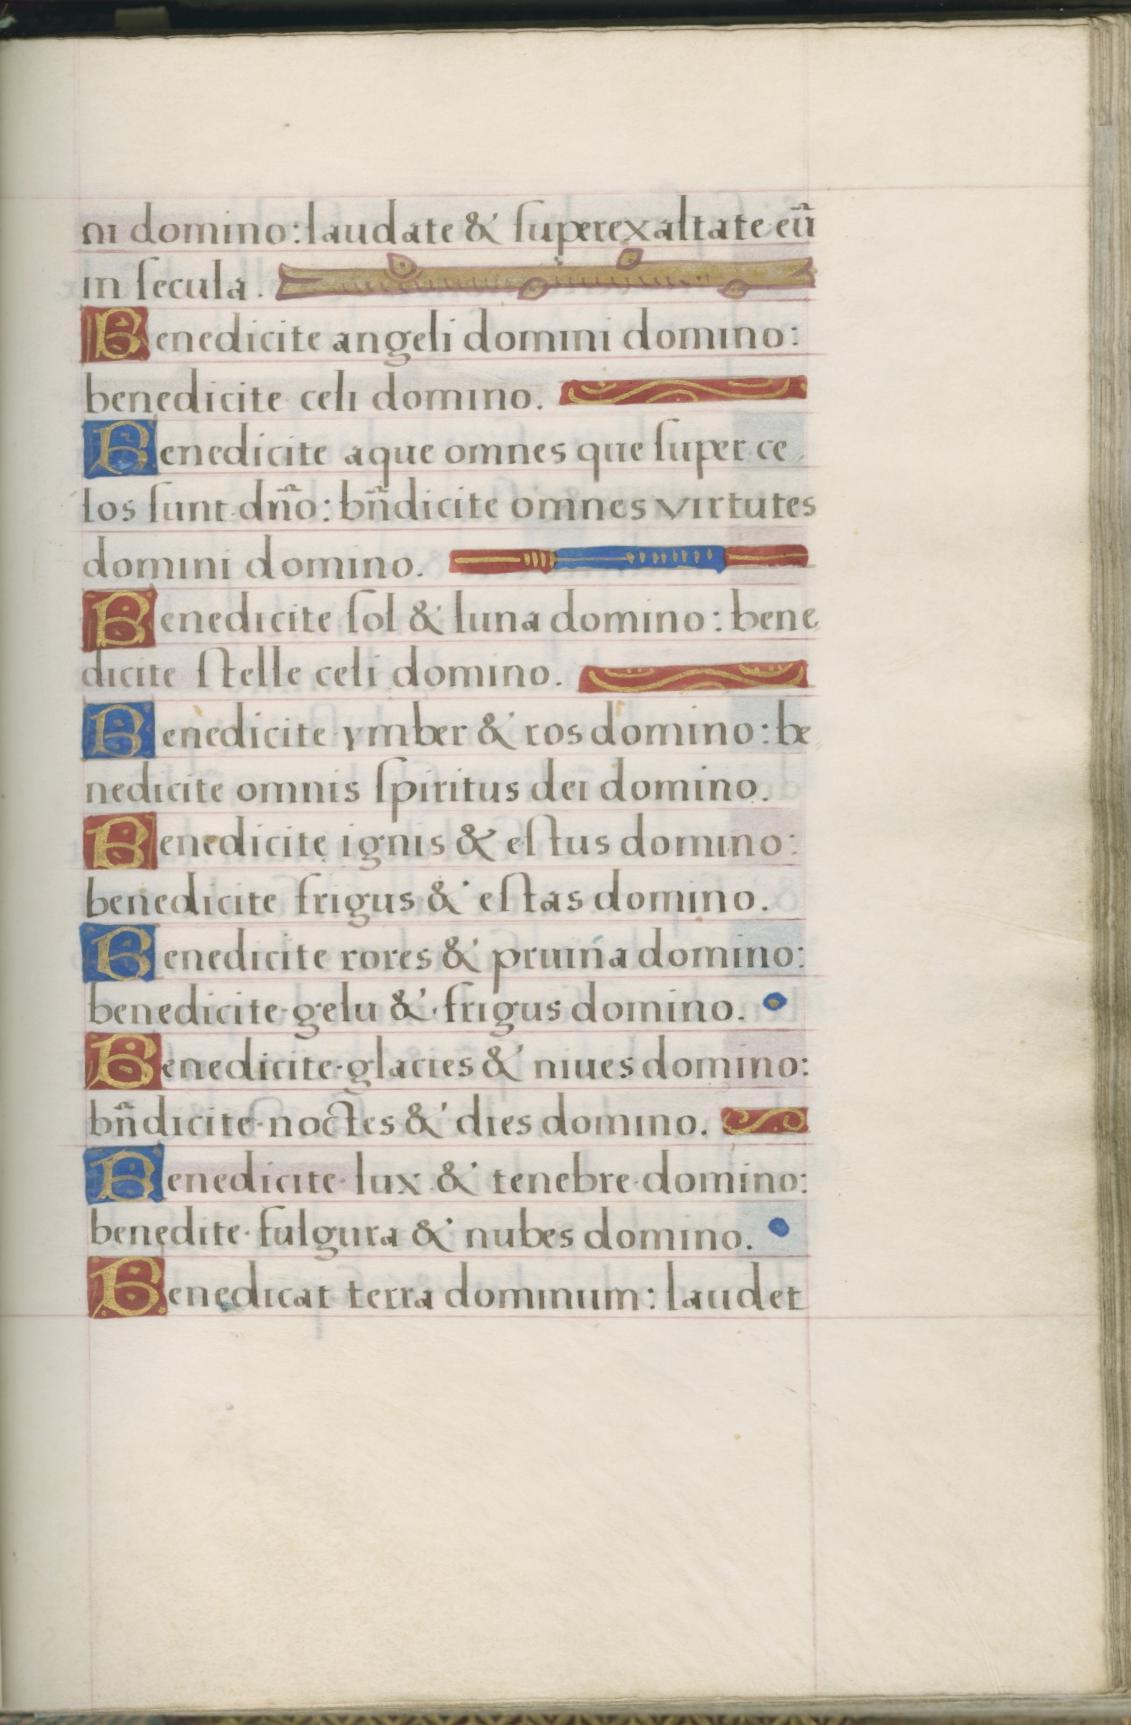 ni domino: laudate & ſuperexaltate eū
in ſecula.
Benedicite angeli domini domino:
benedicite celi domino.
Benedicite aque omnes que ſuper ce
los ſunt dño: bñdicite omnes virtutes
domini domino.
Benedicite ſol & luna domino: bene
dicite ſtelle celi domino.
Benedicite ymber & ros domino: be
nedicite omnis ſpiritus dei domino.
Benedicite ignis & eſtus domino:
benedicite frigus & eſtas domino.
Benedicite rores & pruina domino:
benedicite gelu & frigus domino.
Benedicite glacies & niues domino:
bñdicite noctes & dies domino.
Benedicite lux & tenebre domino:
benedite fulgura & nubes domino.
Benedicat terra dominum: laudet